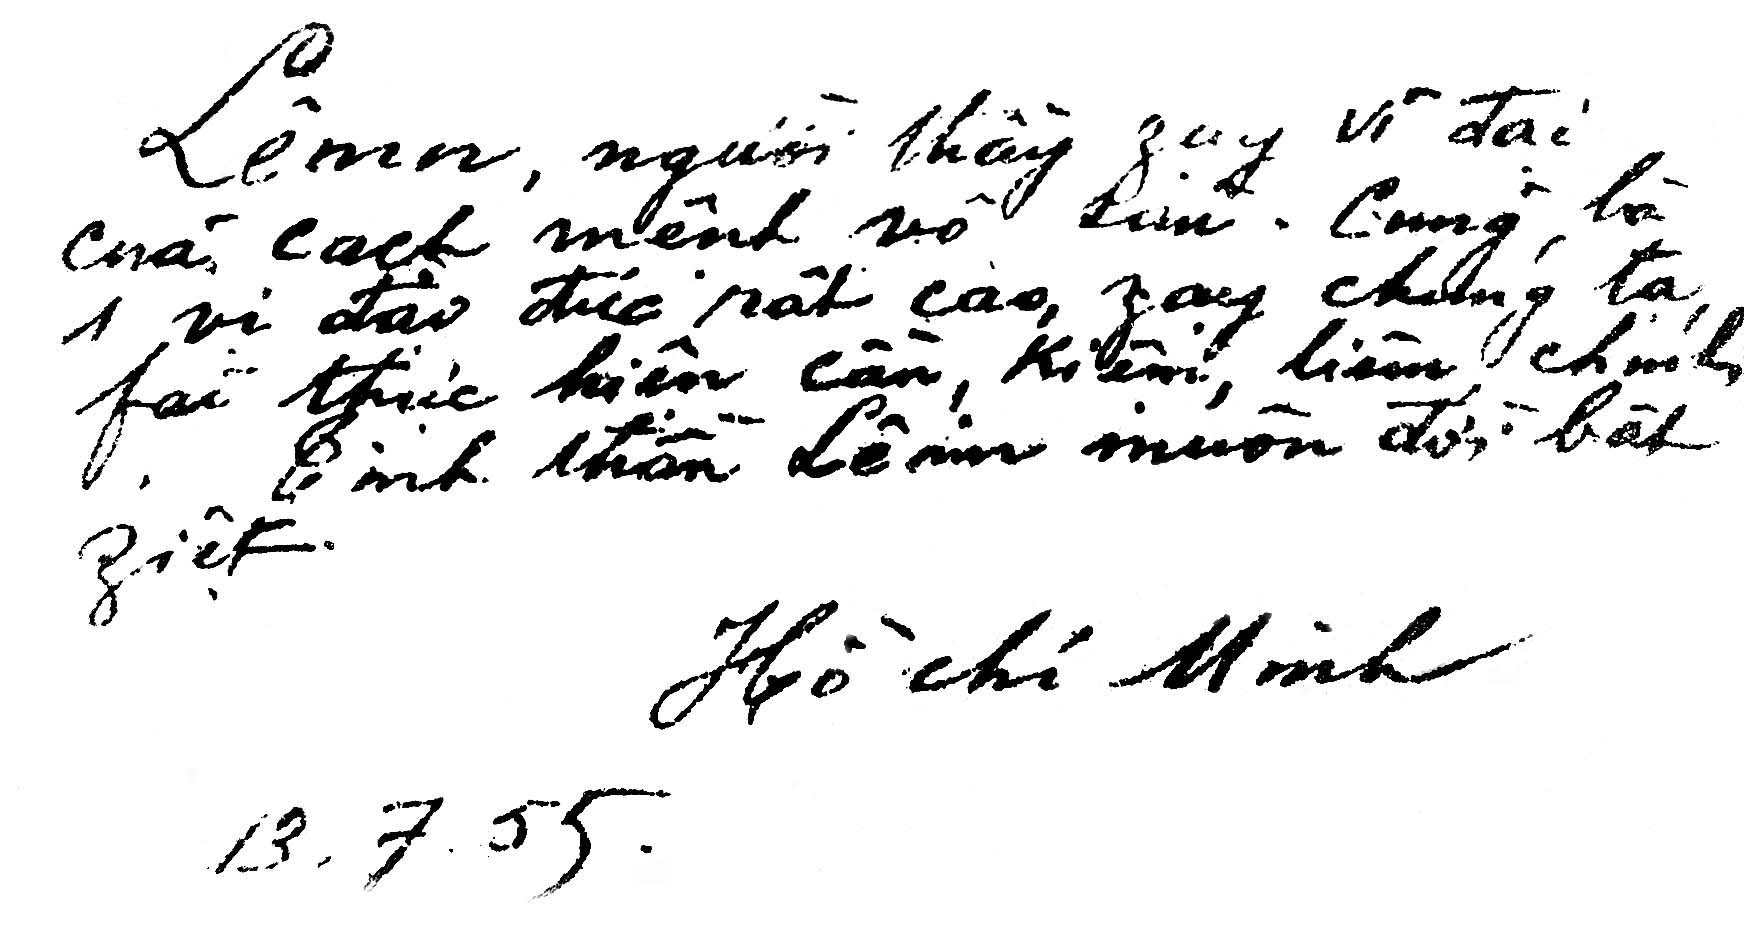 Lênin, người thầy zạy vĩ đại
của cách mệnh vô sản. Cũng là
1 vị đạo đức rất cao, zạy chúng ta
fải thực hiện cần, kiệm, liêm, chính.
Tinh thần Lênin muôn đời bất
ziệt.
Hồ chí Minh
13.7.55.